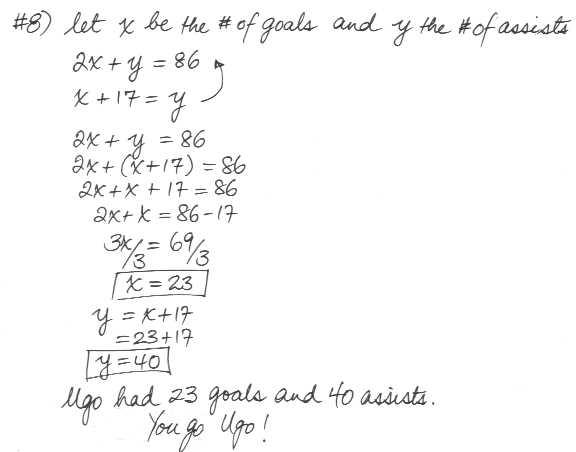 #8) let x be the # of goals and y the # of assists
2x + y = 86
x + 17 = y
2x + y = 86
2x + (x+17) = 86
2x + x + 17 = 86
2x + x = 86 - 17
3x/3 = 69/3
x = 23
y = x + 17
= 23 + 17
y = 40
Ugo had 23 goals and 40 assists.
You go Ugo!